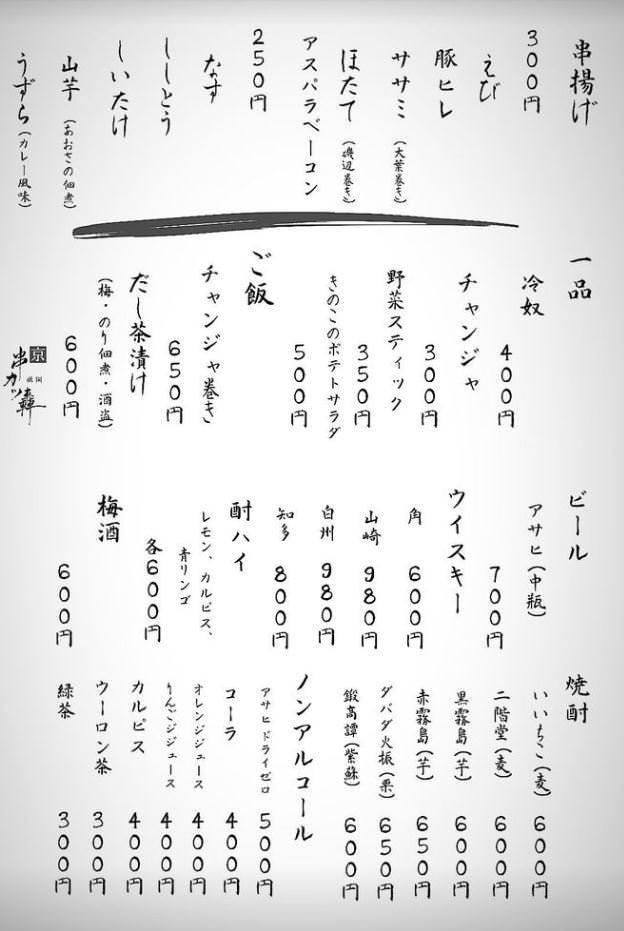 串揚げ
300円
えび
豚ヒレ
ササミ（大葉巻き）
ほたて（磯辺巻き）
アスパラベーコン
250円
なす
ししとう
しいたけ
山芋（あおさの佃煮）
うずら（カレー風味）
一品
冷奴 400円
チャンジャ 300円
野菜スティック 350円
きのこのポテトサラダ 500円
ご飯
チャンジャ巻き 650円
だし茶漬け
（梅・のり佃煮・酒盗） 600円
京
祇園
串カツ
ビール
アサヒ（中瓶） 700円
ウイスキー
角 600円
山崎 980円
白州 980円
知多 800円
酎ハイ
レモン、カルピス、
青リンゴ
各600円
梅酒 600円
焼酎
いいちこ（麦） 600円
二階堂（麦） 600円
黒霧島（芋） 600円
赤霧島（芋） 650円
ダバダ火振（栗） 650円
鍛高譚（紫蘇） 600円
ノンアルコール
アサヒドライゼロ 500円
コーラ 400円
オレンジジュース 400円
りんごジジュース 400円
カルピス 400円
ウーロン茶 300円
緑茶 300円